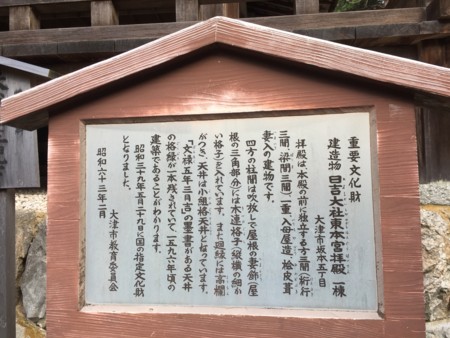 重要文化財
建造物 日吉大社東本宮拝殿 一棟
大津市坂本五丁目
拝殿は本殿の前に独立する方三間(桁行
三間、梁間三間)一重、入母屋造、桧皮葺
妻入の建物です。
四方の柱間は吹放しで屋根の妻飾(屋
根の三角部分)には木連格子(縦横の細か
い格子)を入れています。また廻縁には高欄
がつき、天井は小組格天井となっています。
「文禄五年三月吉」の墨書がある天井
の格縁が一本残されていて一五九六年頃の
建築であることがわかります。
昭和三十九年五月二十九日に国の指定文化財
となりました。
昭和六十三年二月
大津市教育委員会